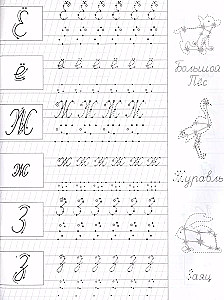 Ё Ё Ё Ё Ё Ё Ё
ё ё ё ё ё ё ё
Большой
Пёс
Ж Ж Ж Ж Ж
ж ж ж ж ж ж
Журавль
З З З З З З З
з з з з з з з
Заяц